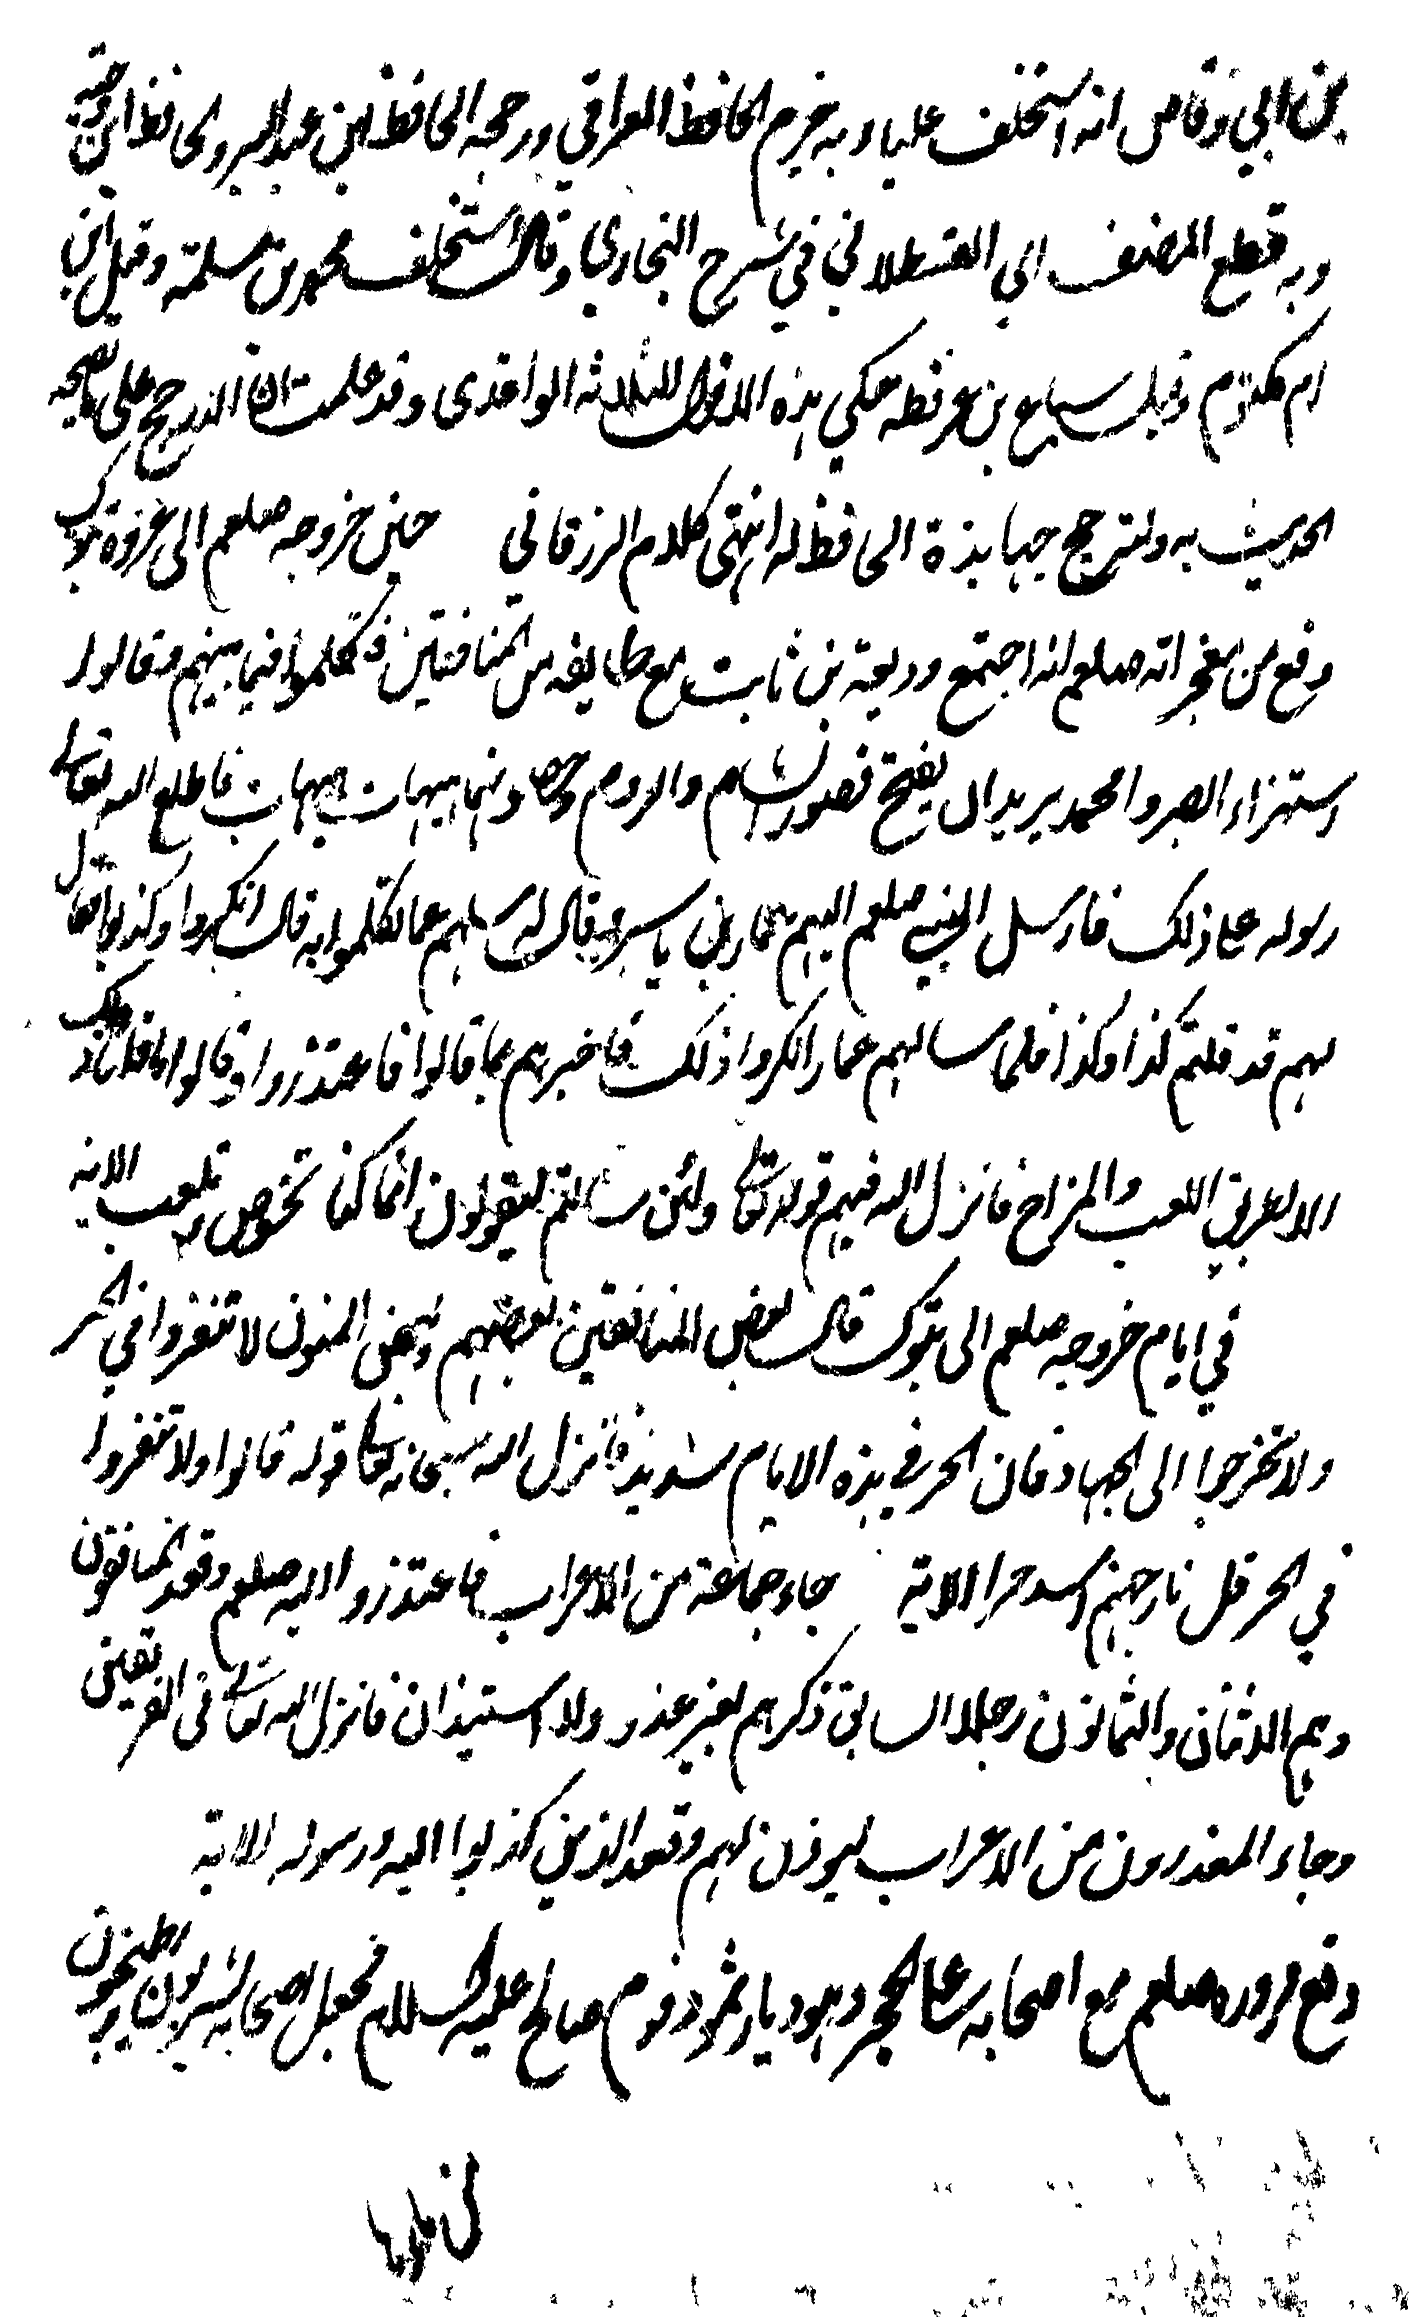 بن ابي وقاص انه استخلف عليا وبه جزم الحافظ العراقي ورجحه الحافظ ابن عبد البر والحافظ ابن دحية
وبه قطع المصنف اي القسطلاني في شرح البخاري وقال استخلف محمد بن مسلمة وقيل ابن
ام مكتوم وقيل سباع بن عرفطه حكي هذه الاقوال الثلاثه الواقدى وقد علمت ان الترجيح على ما صححه
الحديث به ولترجيح جهابذة الحافظ له انتهى كلام الزرقاني حين خروجه صلعم الى غزوة تبوك
وقع من معجزاته صلعم انه اجتمع وديعة بن ثابت مع طايفه من المنافقين فتكلموا فيما بينهم وقالوا
استهزاء ابصروا محمد يريد ان يفتح قصور الشام والروم وحصونهما هيهات هيهات فاطلع الله تعالى
رسوله على ذلك فارسل النبي صلعم اليهم عمار بن ياسر وقال له سلهم عما تكلموا به فان انكروا وكذبوا فقل
لهم قد قلتم كذا وكذا فلما سالهم عمار انكروا ذلك فاخبرهم بما قالوا فاعتذروا وقالوا ما قلنا ذلك
الا بطريق اللعب والمزاح فانزل الله فيهم قوله تعالى ولئن سالتهم ليقولون انما كنا نخوض ونلعب الاية
في ايام خروجه صلعم الى تبوك قال بعض المنافقين لبعضهم ولبعض المؤمنين لا تنفروا في الحر
ولا تخرجوا الى الجهاد فان الحر في هذه الايام شديد فانزل الله سبحانه تعالى قوله قالوا ولا تنفروا
في الحر قل نار جهنم اشد حرا الاية جاء جماعة من الاعراب فاعتذروا اليه صلعم وقعد المنافقون
وهم الاثنان والثمانون رجلا السابق ذكرهم بغير عذر ولا استيذان فانزل الله تعالى فى الفريقين
وجاء المعذرون من الاعراب ليوذن لهم وقعد الذين كذبوا الله ورسوله الاية
وقع مروره صلعم مع اصحابه على الحجر وهو ديار ثمود قوم صالح عليه السلام فجعل اصحابه يشربون ويطبخون